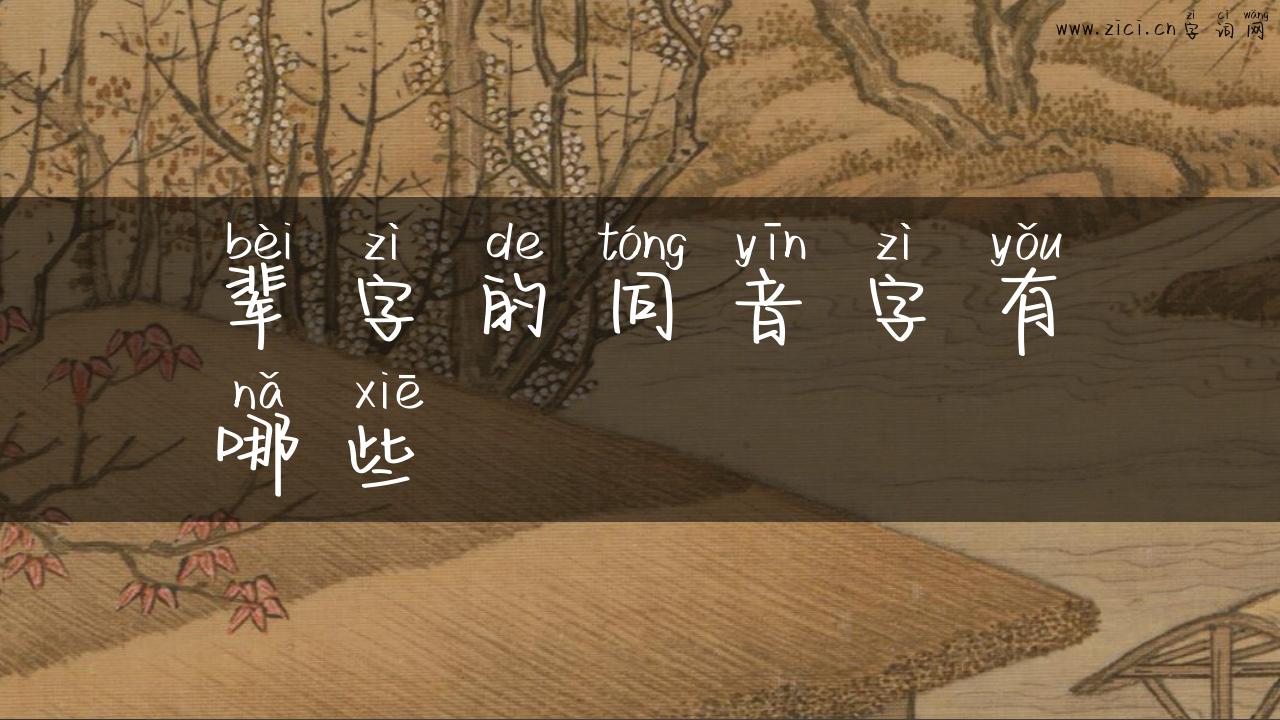 zì cí wǎng
www.zici.cn 字词网
bèi zì de tóng yīn zì yǒu
辈字的同音字有
nǎ xiē
哪些